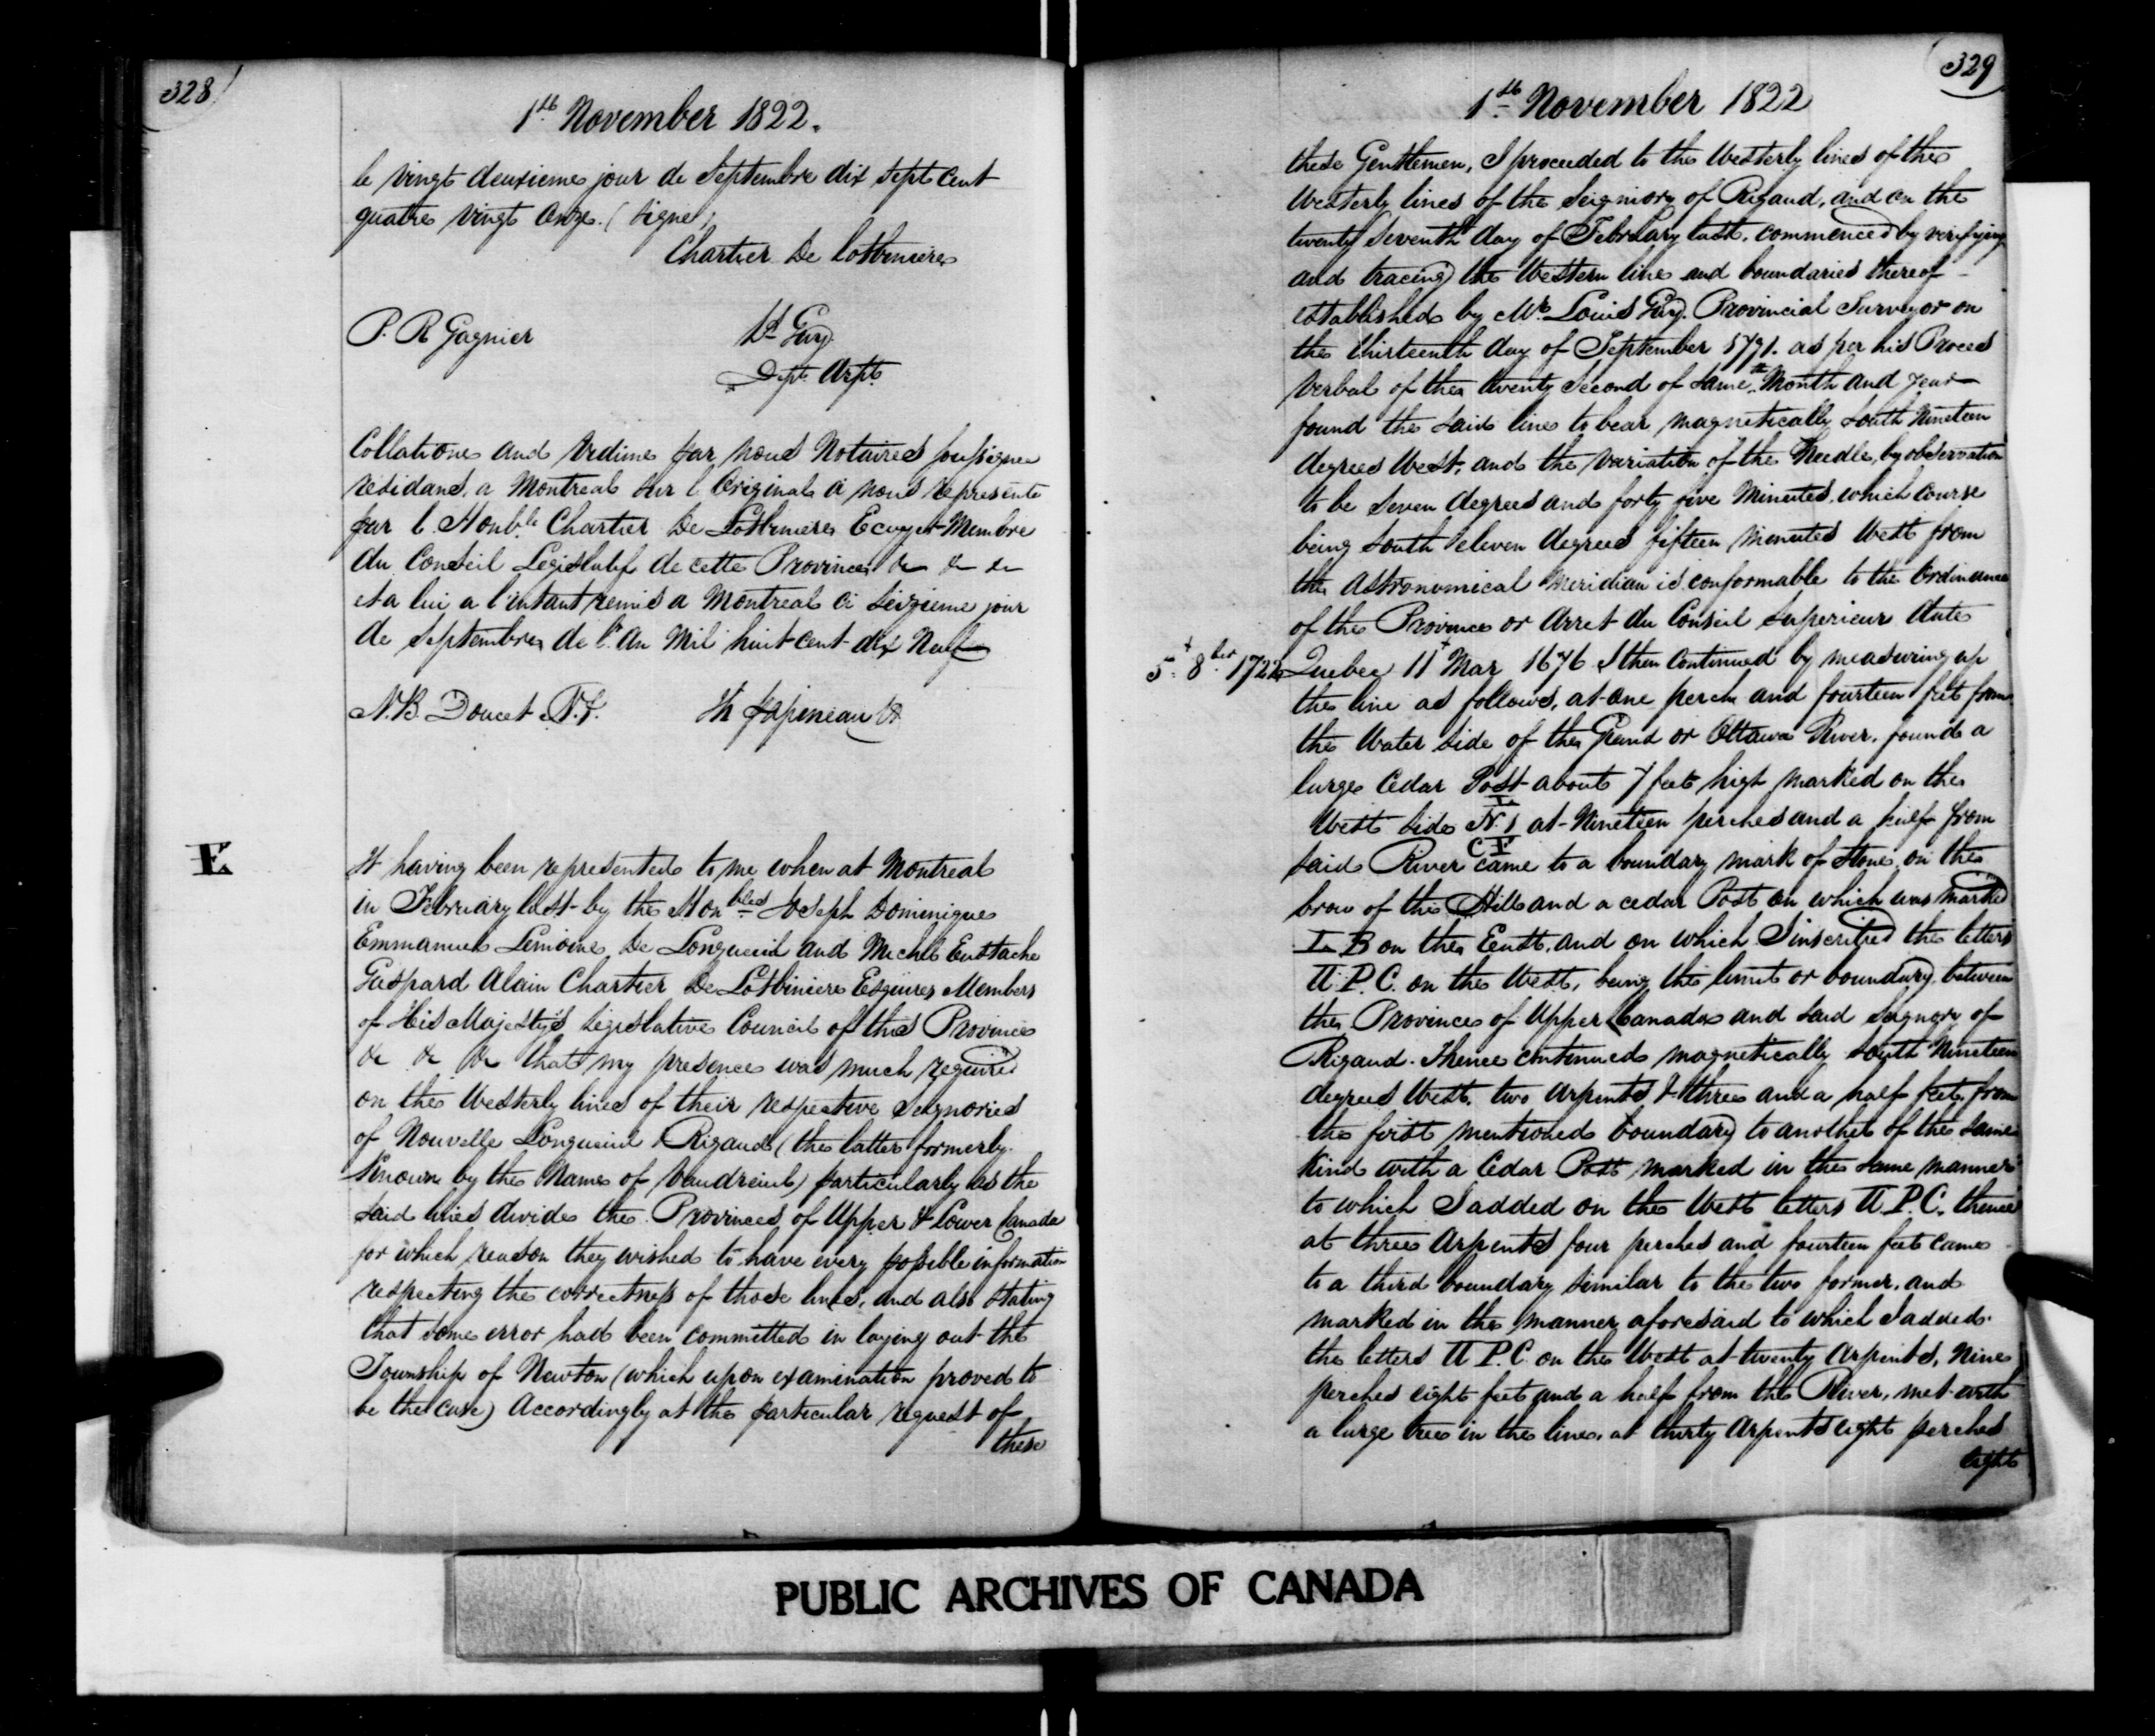 328
1th November 1822.
le vingt deuxieme jour de Septembre dix sept cent
quatre vingt onze. (Signé)
Chartier De Lotbiniere
P. R Gagnier
Ls Guy
Dept. Arpt.
Collatione and Vidime par nous Notaires soussignes
residans, a Montreal sur l Original a nous represente
par l. Honble. Chartier De Lotbiniere Ecuyer Membre
du Conseil Legislatif de cette Province &c &c &c
et a lui a l'intant remis a Montreal ci Seizieme jour
de Septembre de l'An Mil huit cent dix Neuf
N.B. Doucet N.P.
Papineau
E
It having been represented to me when at Montreal
in February last by the Honbles Joseph Dominique
Emmanuel Lemoine De Longueuil and Michel Eustache
Gaspard Alain Chartier De Lotbiniere Esquires Members
of His Majesty's Legislative Council of this Province
&c &c &c that my presence was much required
on the Westerly lines of their respective Seignories
of Nouvelle Longueuil & Rigaud (the latter formerly
Known by the Name of Vaudreuil) particularly as the
said lines divide the Provinces of Upper & Lower Canada
for which reason they wished to have every possible information
respecting the correctness of those lines, and also stating
that some error had been committed in laying out the
Township of Newton (which upon examination proved to
be the case) Accordingly at the particular request of
these
329
1th November 1822
these Gentlemen, I proceeded to the Westerly lines of the
Westerly lines of the Seigniory of Rigaud, and on the
twenty Seventh day of February last, commenced by verifying
and tracing the Western line and boundaries thereof
established by Mr. Louis Guy. Provincial Surveyor on
the thirteenth day of September 1791. as per his Proces
Verbal of the twenty second of same Month and year
found the said line to bear magnetically South Nineteen
degrees West, and the Variation of the Needle, by observation
to be Seven degrees and forty five Minutes, which course
being South eleven degrees fifteen minutes West from
the Astronomical Meridian is conformable to the Ordinance
of the Province or Arret du Conseil Superieur date
+ 5. 8ber 1722
Quebec 11+ Mar 1676 I then continued by measuring up
the line as follows, at one perch and fourteen feet from
the Water side of the Grand or Ottawa River. found a
large Cedar Post about 7 feet high marked on the
L
West side N. 1 at Nineteen perches and a half from
C F
said River came to a boundary mark of Stone, on the
brow of the Hill and a cedar Post on which was marked
L B on the East, and on which I inscribed the letters
U.P.C. on the West, being the limit or boundary between
the Province of Upper Canada and said Seignory of
Rigaud. Thence continued magnetically South Nineteen
degrees West. two Arpents & three and a half feet, from
the first mentioned boundary to another of the same
Kind with a Cedar Post marked in the same manner
to which I added on the West letters U.P.C. thence
at three Arpents four perches and fourteen feet came
to a third boundary similar to the two former. and
marked in the manner aforesaid to which I added
the letters U P.C. on the West at twenty Arpents, Nine
perches eight feet and a half from the River, met with
a large tree in the line. at thirty Arpents eight perches
eight
PUBLIC ARCHIVES OF CANADA